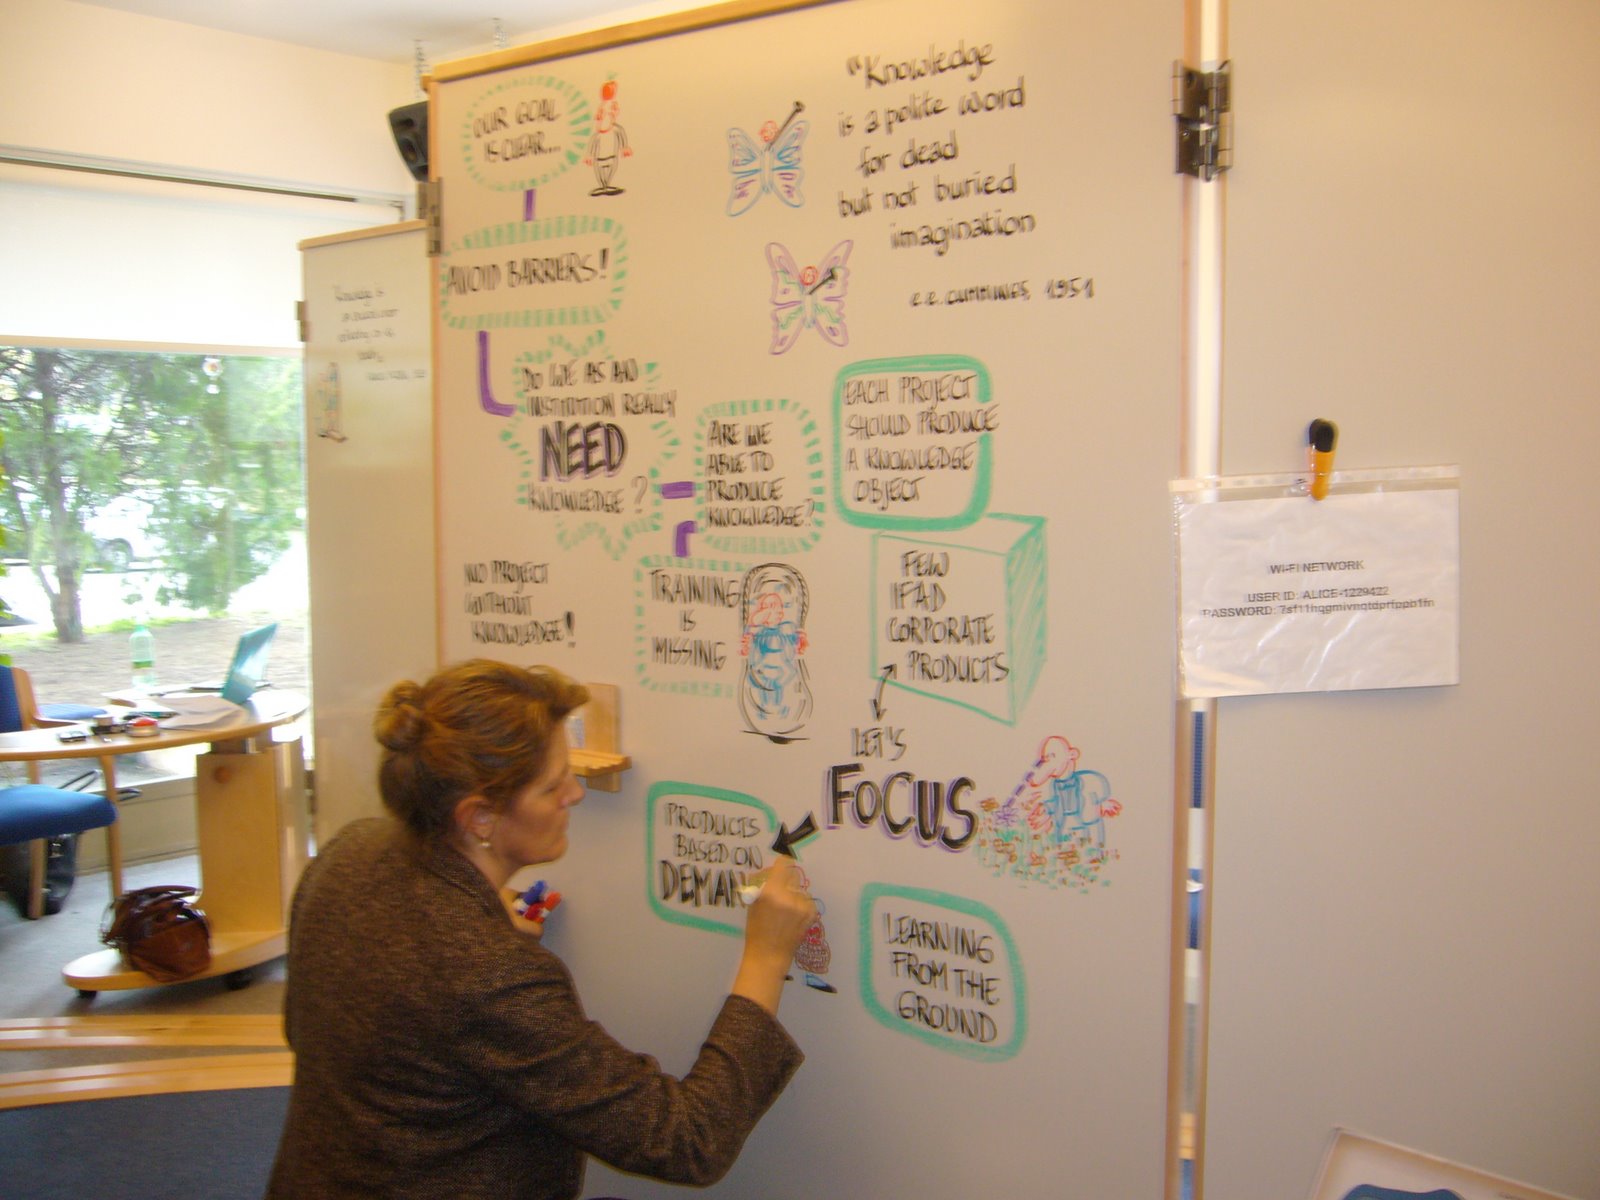 OUR GOAL
IS CLEAR...
AVOID BARRIERS!
DO WE AS AN
INSTITUTION REALLY
NEED
KNOWLEDGE?
ARE WE
ABLE TO
PRODUCE
KNOWLEDGE?
NO PROJECT
WITHOUT
KNOWLEDGE!
TRAINING
IS
MISSING
"Knowledge
is a polite word
for dead
but not buried
imagination
e.e. CUMMINGS, 1951
EACH PROJECT
SHOULD PRODUCE
A KNOWLEDGE
OBJECT
FEW
IFAD
CORPORATE
PRODUCTS
LET'S
FOCUS
PRODUCTS
BASED ON
DEMAN
LEARNING
FROM THE
GROUND
WI-FI NETWORK
USER ID: ALICE-1229422
PASSWORD:
Knowledge is